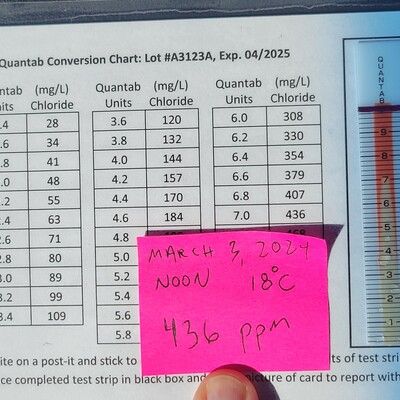 Quantab Conversion Chart: Lot #A3123A, Exp. 04/2025
ntab (mg/L) Quantab (mg/L) Quantab (mg/L)
its Chloride Units Chloride Units Chloride
.4 28 3.6 120 6.0 308
.6 34 3.8 132 6.2 330
.8 41 4.0 144 6.4 354
.0 48 4.2 157 6.6 379
.2 55 4.4 170 6.8 407
.4 63 4.6 184 7.0 436
2.6 71 4.8
2.8 80 5.0
3.0 89 5.2
3.2 99 5.4
3.4 109 5.6
5.8
MARCH 3, 2024
NOON 18°C
436 ppm
ite on a post-it and stick to ts of test stri
ce completed test strip in black box and picture of card to report with
QUANTAB
9
8
7
6
5
4
3
2
1